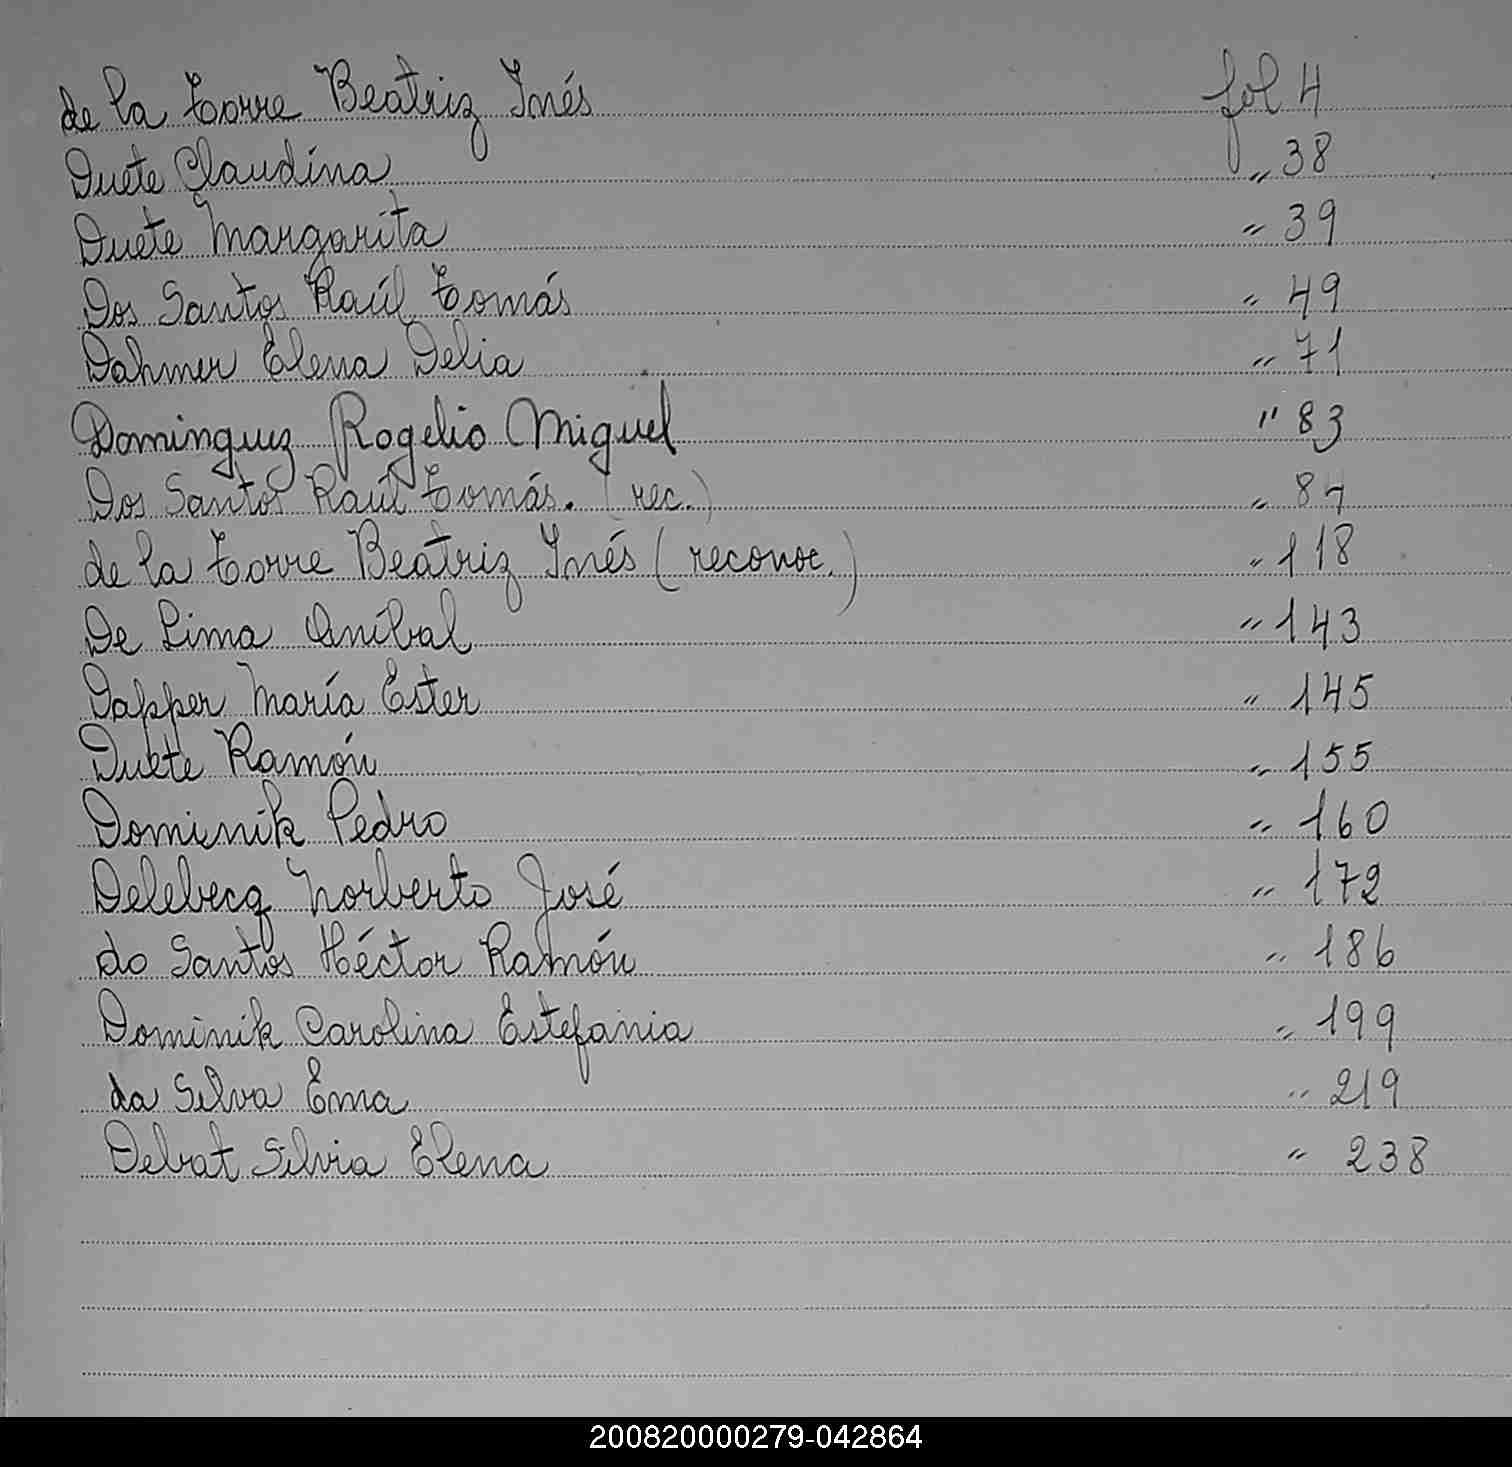 de la Torre Beatriz Inés fol 4
Duete Claudina " 38
Duete Margarita " 39
Dos Santos Raúl Tomás " 49
Dahmer Elena Delia " 71
Dominguez Rogelio Miguel " 83
Dos Santos Raúl Tomás. (rec.) " 87
de la Torre Beatriz Inés (reconoc.) " 118
De Lima Aníbal " 143
Dapper María Ester " 145
Duete Ramón " 155
Dominik Pedro " 160
Delebecq Norberto José " 172
do Santos Héctor Ramón " 186
Dominik Carolina Estefania " 199
da Silva Ema " 219
Debat Silvia Elena " 238
200820000279-042864